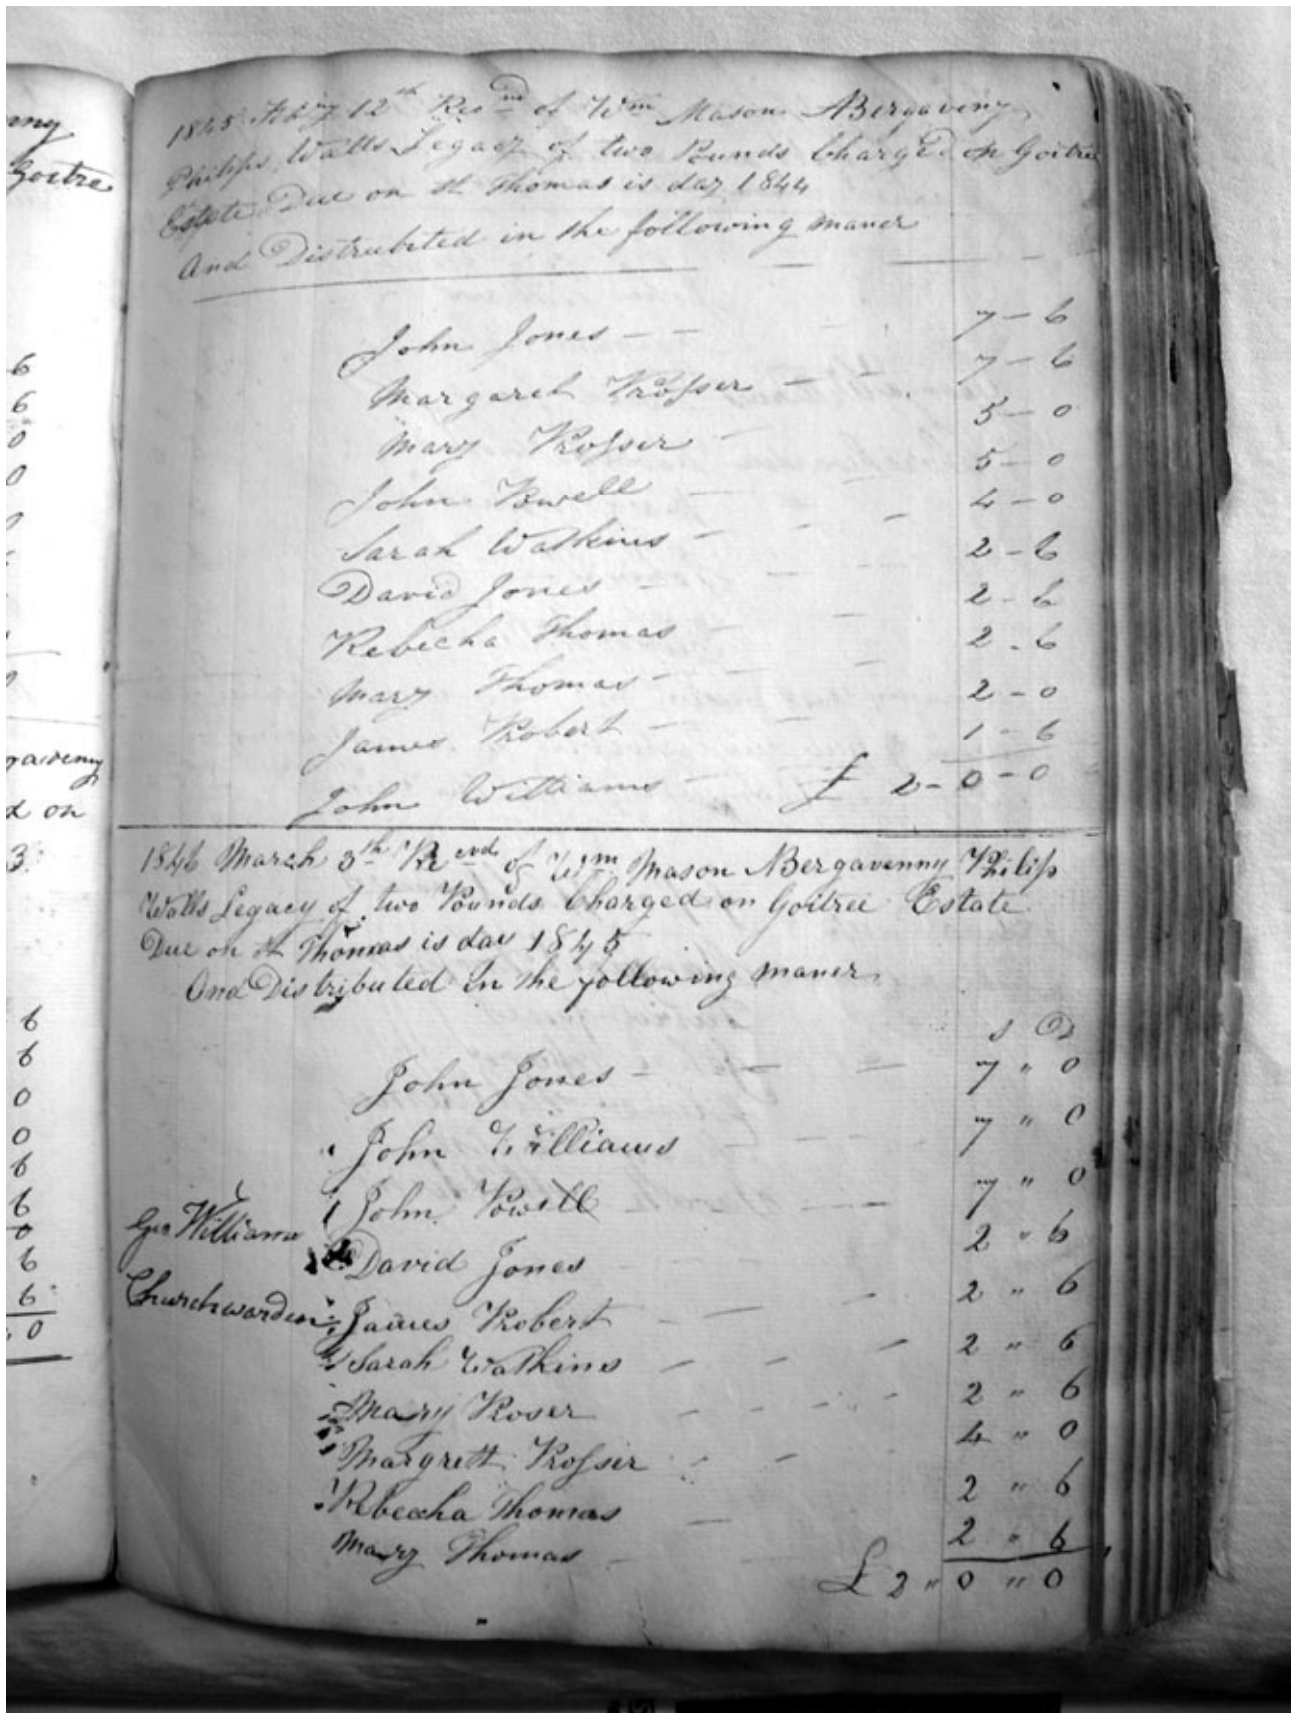 nny
Goitre
6
6
0
0
gavenny
d on
3
6
6
0
0
6
6
0
6
6
0
1845 Febry 12th Recd of Wm Mason Abergaveny
Philips Walls Legacy of two Pounds Charged on Goitre
Estate Due on St Thomas is day 1844
And Distrubited in the following maner
John Jones - - 7 - 6
Margaret Prosser - - 7 - 6
Mary Prosser - 5 - 0
John Powell - 5 - 0
Sarah Watkins - - - 4 - 0
David Jones - - 2 - 6
Rebecha Thomas - - 2 - 6
Mary Thomas - - 2 - 6
James Probert - - 2 - 0
John Williams - 1 - 6
£ 2 - 0 - 0
1846 March 3th Recevd of Wm Mason Abergavenny Philip
Walls Legacy of two Pounds Charged on Goitree Estate
Due on St Thomas is day 1845
And Distributed in the following maner
s D
John Jones - - - 7 " 0
John Williams - - 7 " 0
John Powell - - 7 " 0
Geo Williams
Churchwarden
David Jones 2 " 6
James Probert - - - 2 " 6
Sarah Watkins - - - 2 " 6
Mary Proser - - - - 2 " 6
Margrett Prosser - - - 4 " 0
Rebecha Thomas - 2 " 6
Mary Thomas - 2 " 6
£ 2 " 0 " 0